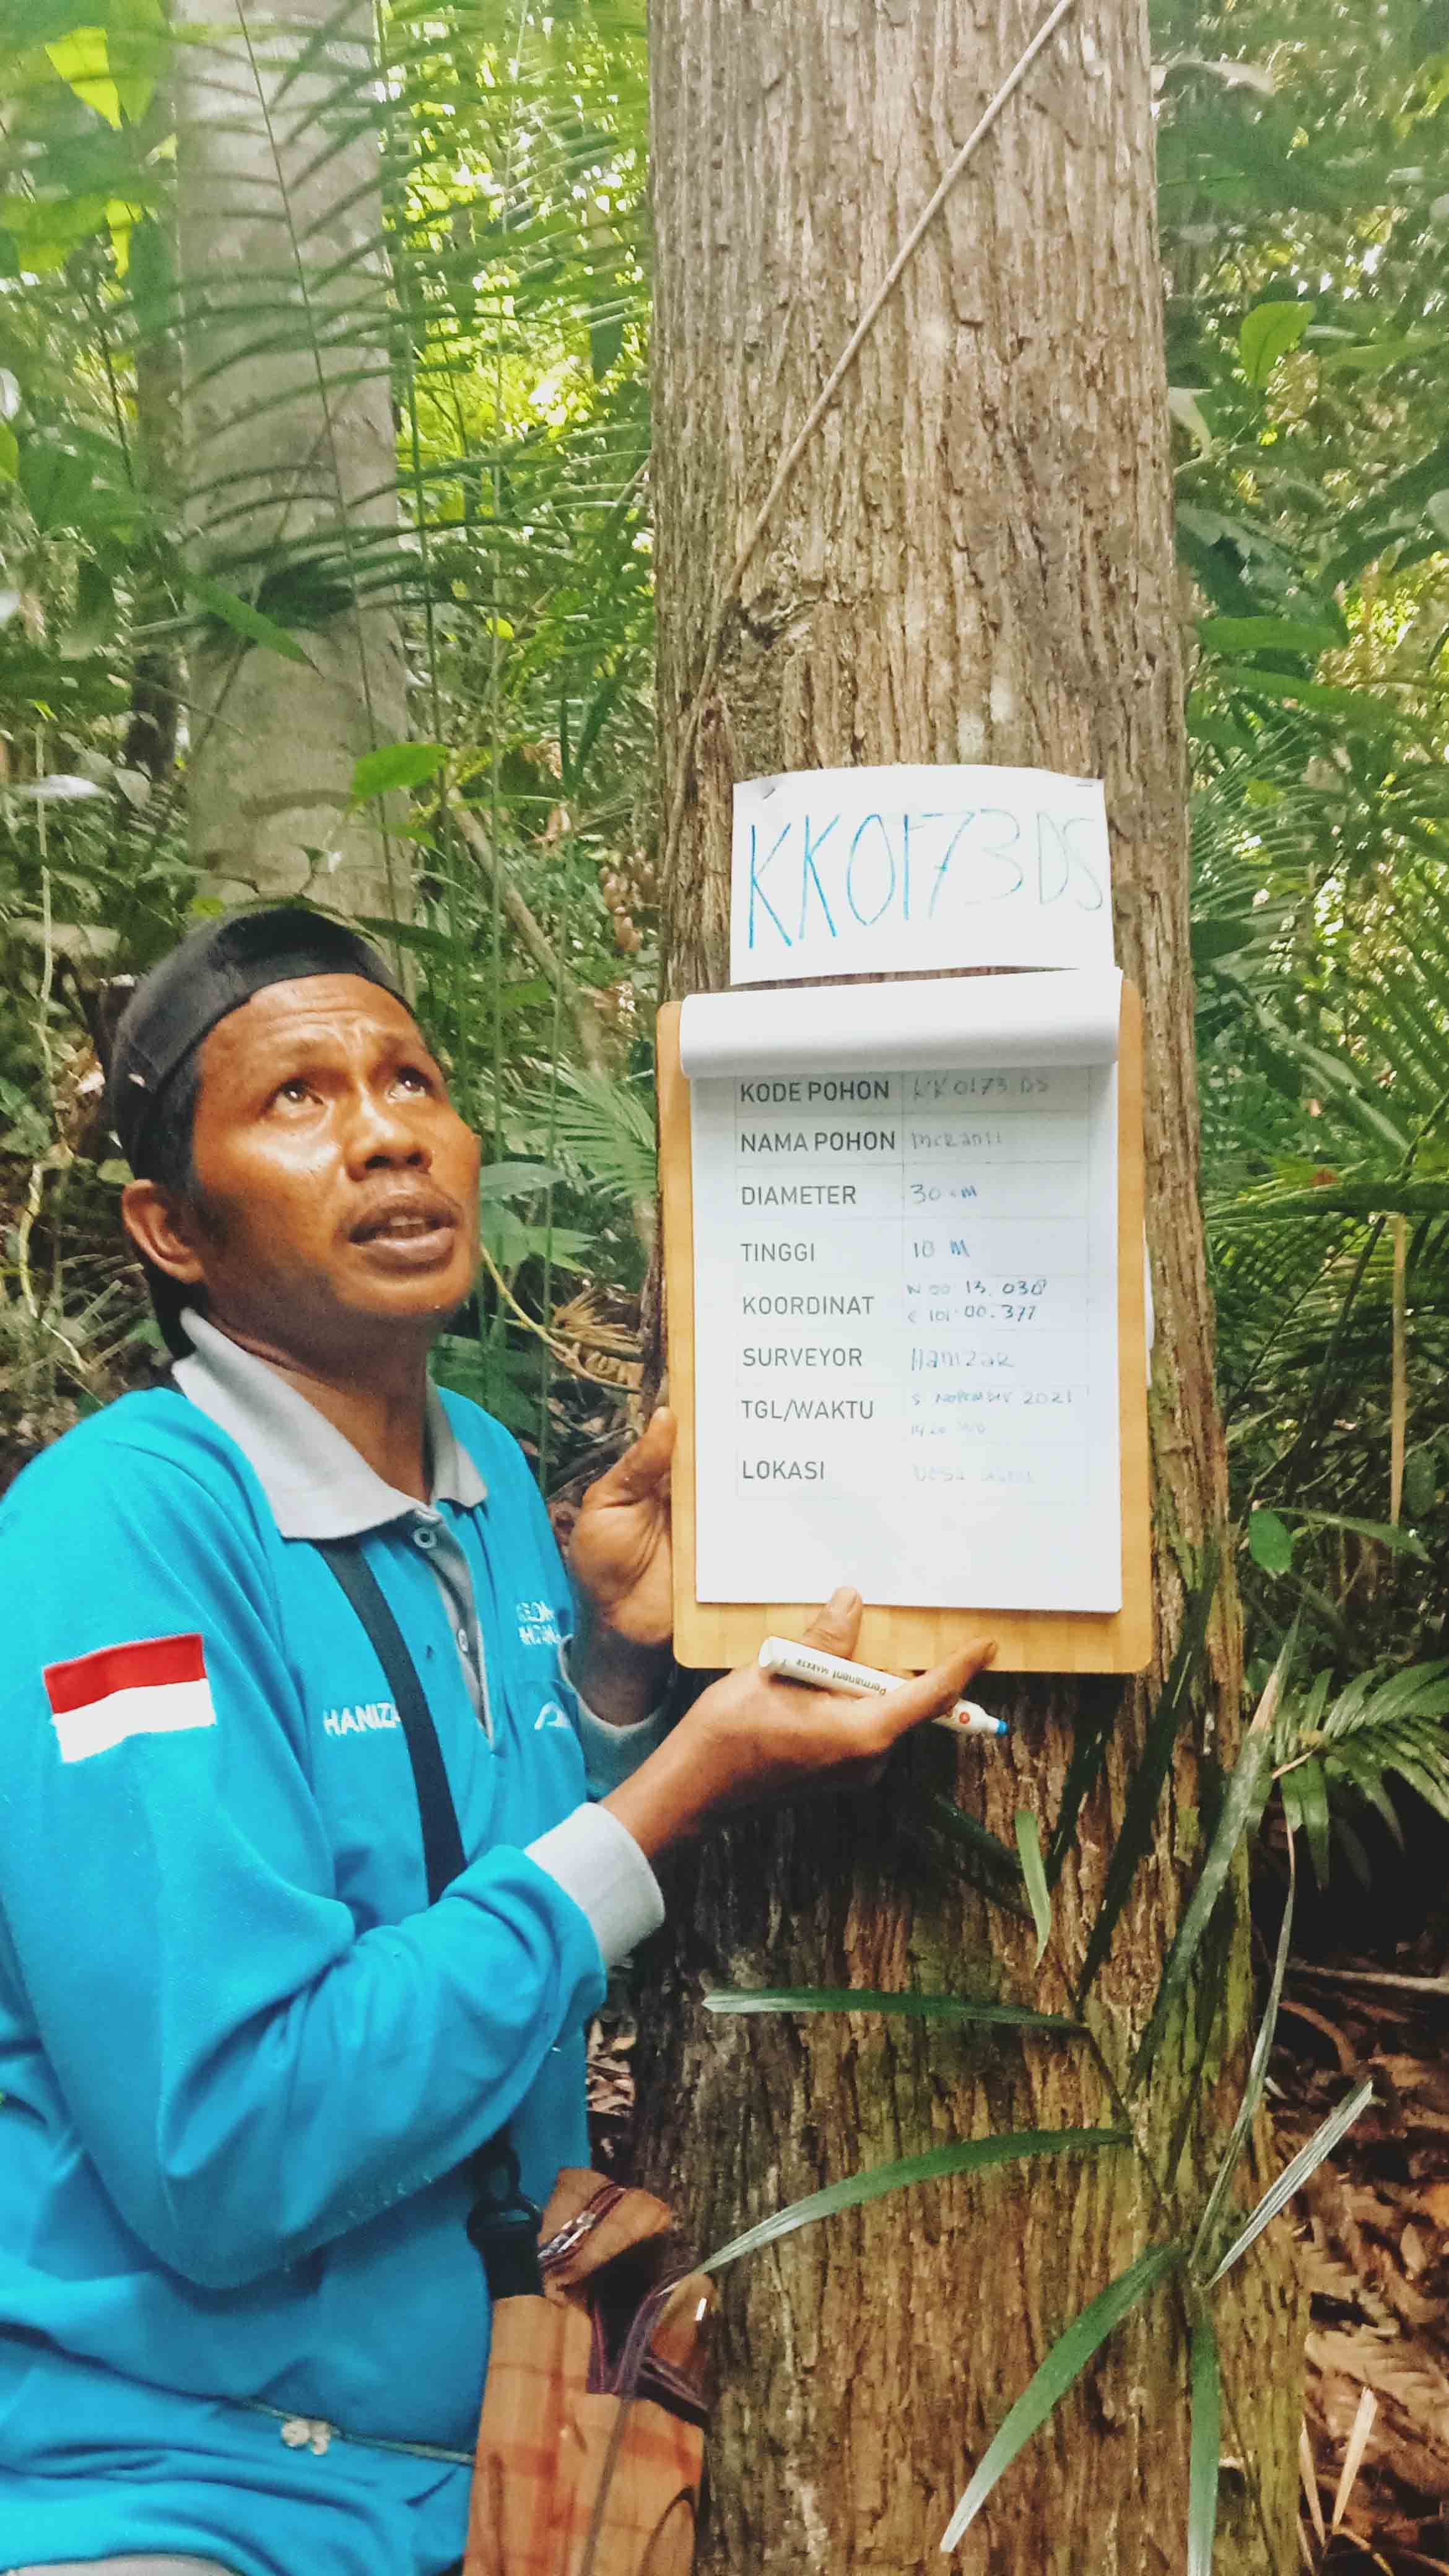 KK0173DS
KODE POHON KK0173 DS
NAMA POHON meRanti
DIAMETER 30 cm
TINGGI 10 M
KOORDINAT N 00 13.038
E 101 00.377
SURVEYOR HanizaR
TGL/WAKTU 5 November 2021
LOKASI Desa
HANIZA
Permanent MARKER